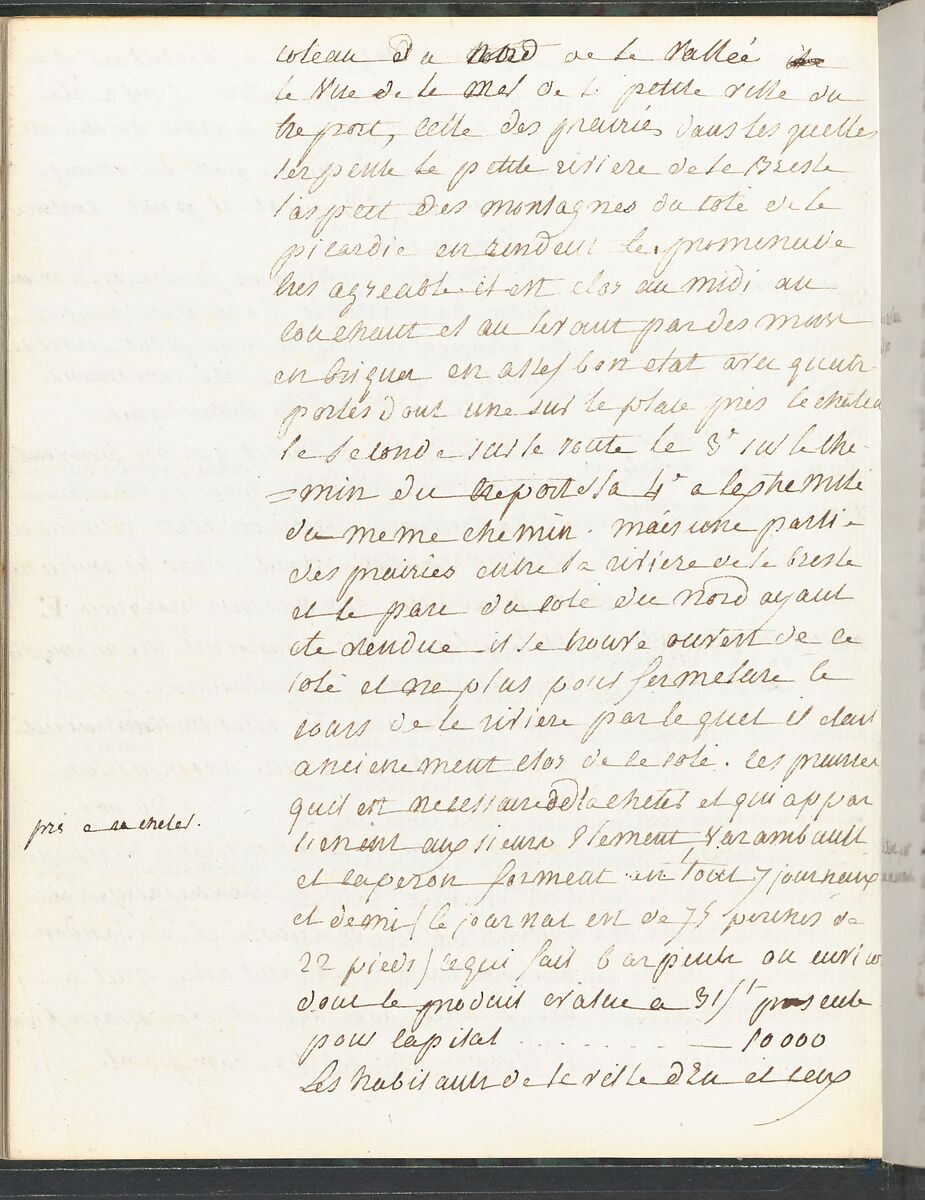 coteau du nord de la vallée
la vue de la mer de la petite ville du
treport, celle des prairies dans les quelles
serpente la petite riviere de la Bresle
l'aspect des montagnes du coté de la
picardie en rendent la promenade
tres agreable il est clos au midi au
couchant et au levant par des murs
en briques en assés bon etat avec quatre
portes dont une sur la place près le chateau
la seconde sur la route la 3e sur le che-
=min du treport et la 4e a lextremité
du meme chemin. mais une partie
des prairies entre la riviere de la bresle
et le parc du coté du nord ayant
eté vendue il se trouve ouvert de ce
coté et ne plus pour fermeture le
cours de la riviere par lequel il etait
anciennement clos de ce coté. les prairies
quil est necessaire de racheter et qui appar
tiennent aux sieurs Clement, Varambault
et Caperon forment en tout 7 journaux
et demi (le journal est de 75 perches de
22 pieds) ce qui fait 6 arpents ou environ
dont le produit evalué a 315 # presente
pour capital . . . . . . . . . — 10000
Les habitants de la ville d'Eu et ceux
prés a racheter.